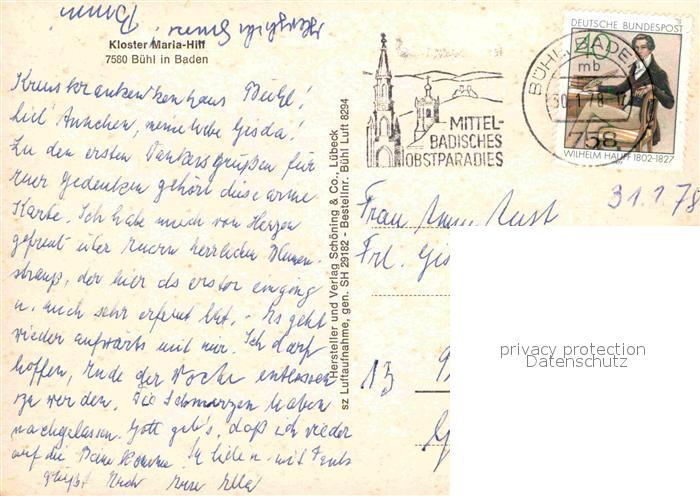 Kloster Maria-Hilf
7580 Bühl in Baden
Kreiskrankenhaus Bühl!
Lieb' Annchen, meine liebe Gisela!
Zu den ersten Dankesgrüßen für
Euer Gedenken gehört diese arme
Karte. Ich habe mich von Herzen
gefreut über Euern herrlichen Blumen-
strauß, der hier als erster einging
u. mich sehr erfreut hat. - Es geht
wieder aufwärts mit mir. Ich darf
hoffen, Ende der Woche entlassen
zu werden. Die Schmerzen haben
nachgelassen. Gott geb's, daß ich wieder
auf die Beine komme. In Liebe u. mit Dank
grüßt Euch Eure Ella
Hersteller und Verlag Schöning & Co., Lübeck
sz Luftaufnahme, gen. SH 29182 - Bestellnr. Bühl Luft 8294
MITTEL-
BADISCHES
OBSTPARADIES
BÜHL, BADEN
mb
30.1.78
758
DEUTSCHE BUNDESPOST
40
WILHELM HAUFF 1802-1827
31.1.78
Frau Anny
Frl.
13
privacy protection
Datenschutz